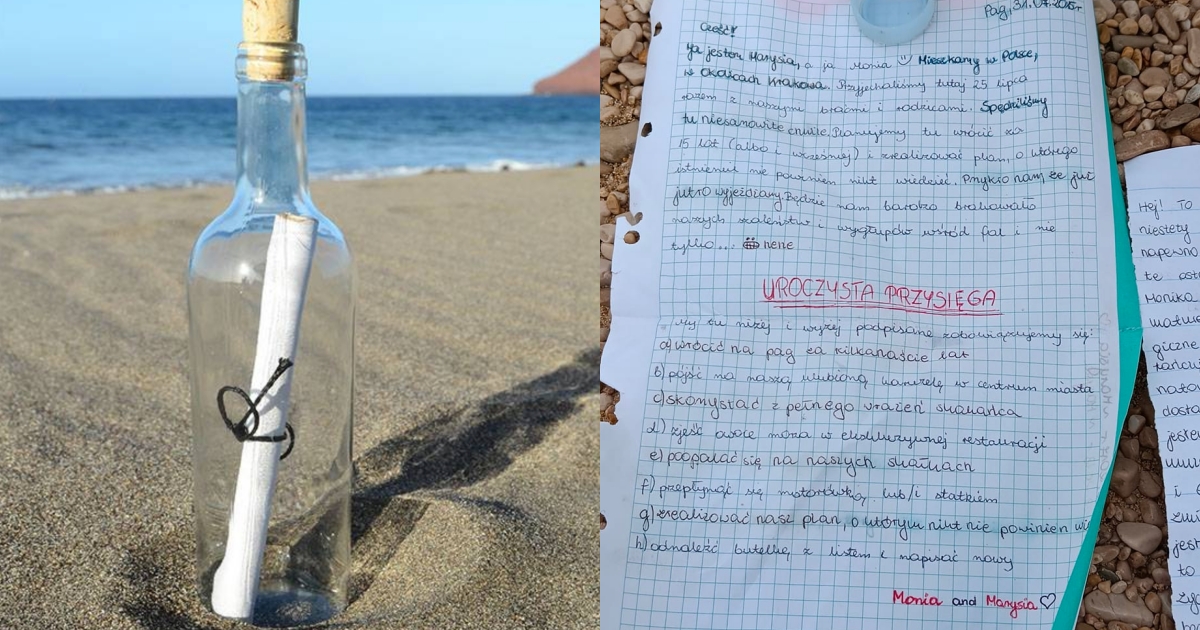 Pag, 31.07.2015r
Cześć!
Ja jestem Marysia, a ja Monia Mieszkamy w Polsce,
w okolicach Krakowa. Przyjechaliśmy tutaj 25 lipca
razem z naszymi braćmi i rodzicami. Spędziliśmy
tu niesamowite chwile. Planujemy tu wrócić za
15 lat (albo i wcześniej) i zrealizować plan, o którego
istnieniu nie powinien nikt wiedzieć. Przykro nam, że już
jutro wyjeżdżamy. Będzie nam bardzo brakowało
naszych szaleństw i wygłupów wśród fal i nie
tylko... hehe
UROCZYSTA PRZYSIĘGA
My tu niżej i wyżej podpisane zobowiązujemy się:
a) wrócić na pag za kilkanaście lat
b) pójść na naszą ulubioną karuzelę w centrum miasta
c) skorzystać z pełnego wrażeń skakańca
d) zjeść owoce morza w ekskluzywnej restauracji
e) poopalać się na naszych skałkach
f) przepłynąć się motorówką lub/i statkiem
g) zrealizować nasz plan, o którym nikt nie powinien wi
h) odnaleźć butelkę z listem i napisać nowy
Monia and Marysia ♡
Hej! TO
niestety
napewno
te ost
Monika
giczne
nato
dosta
jeste
i
jest
to